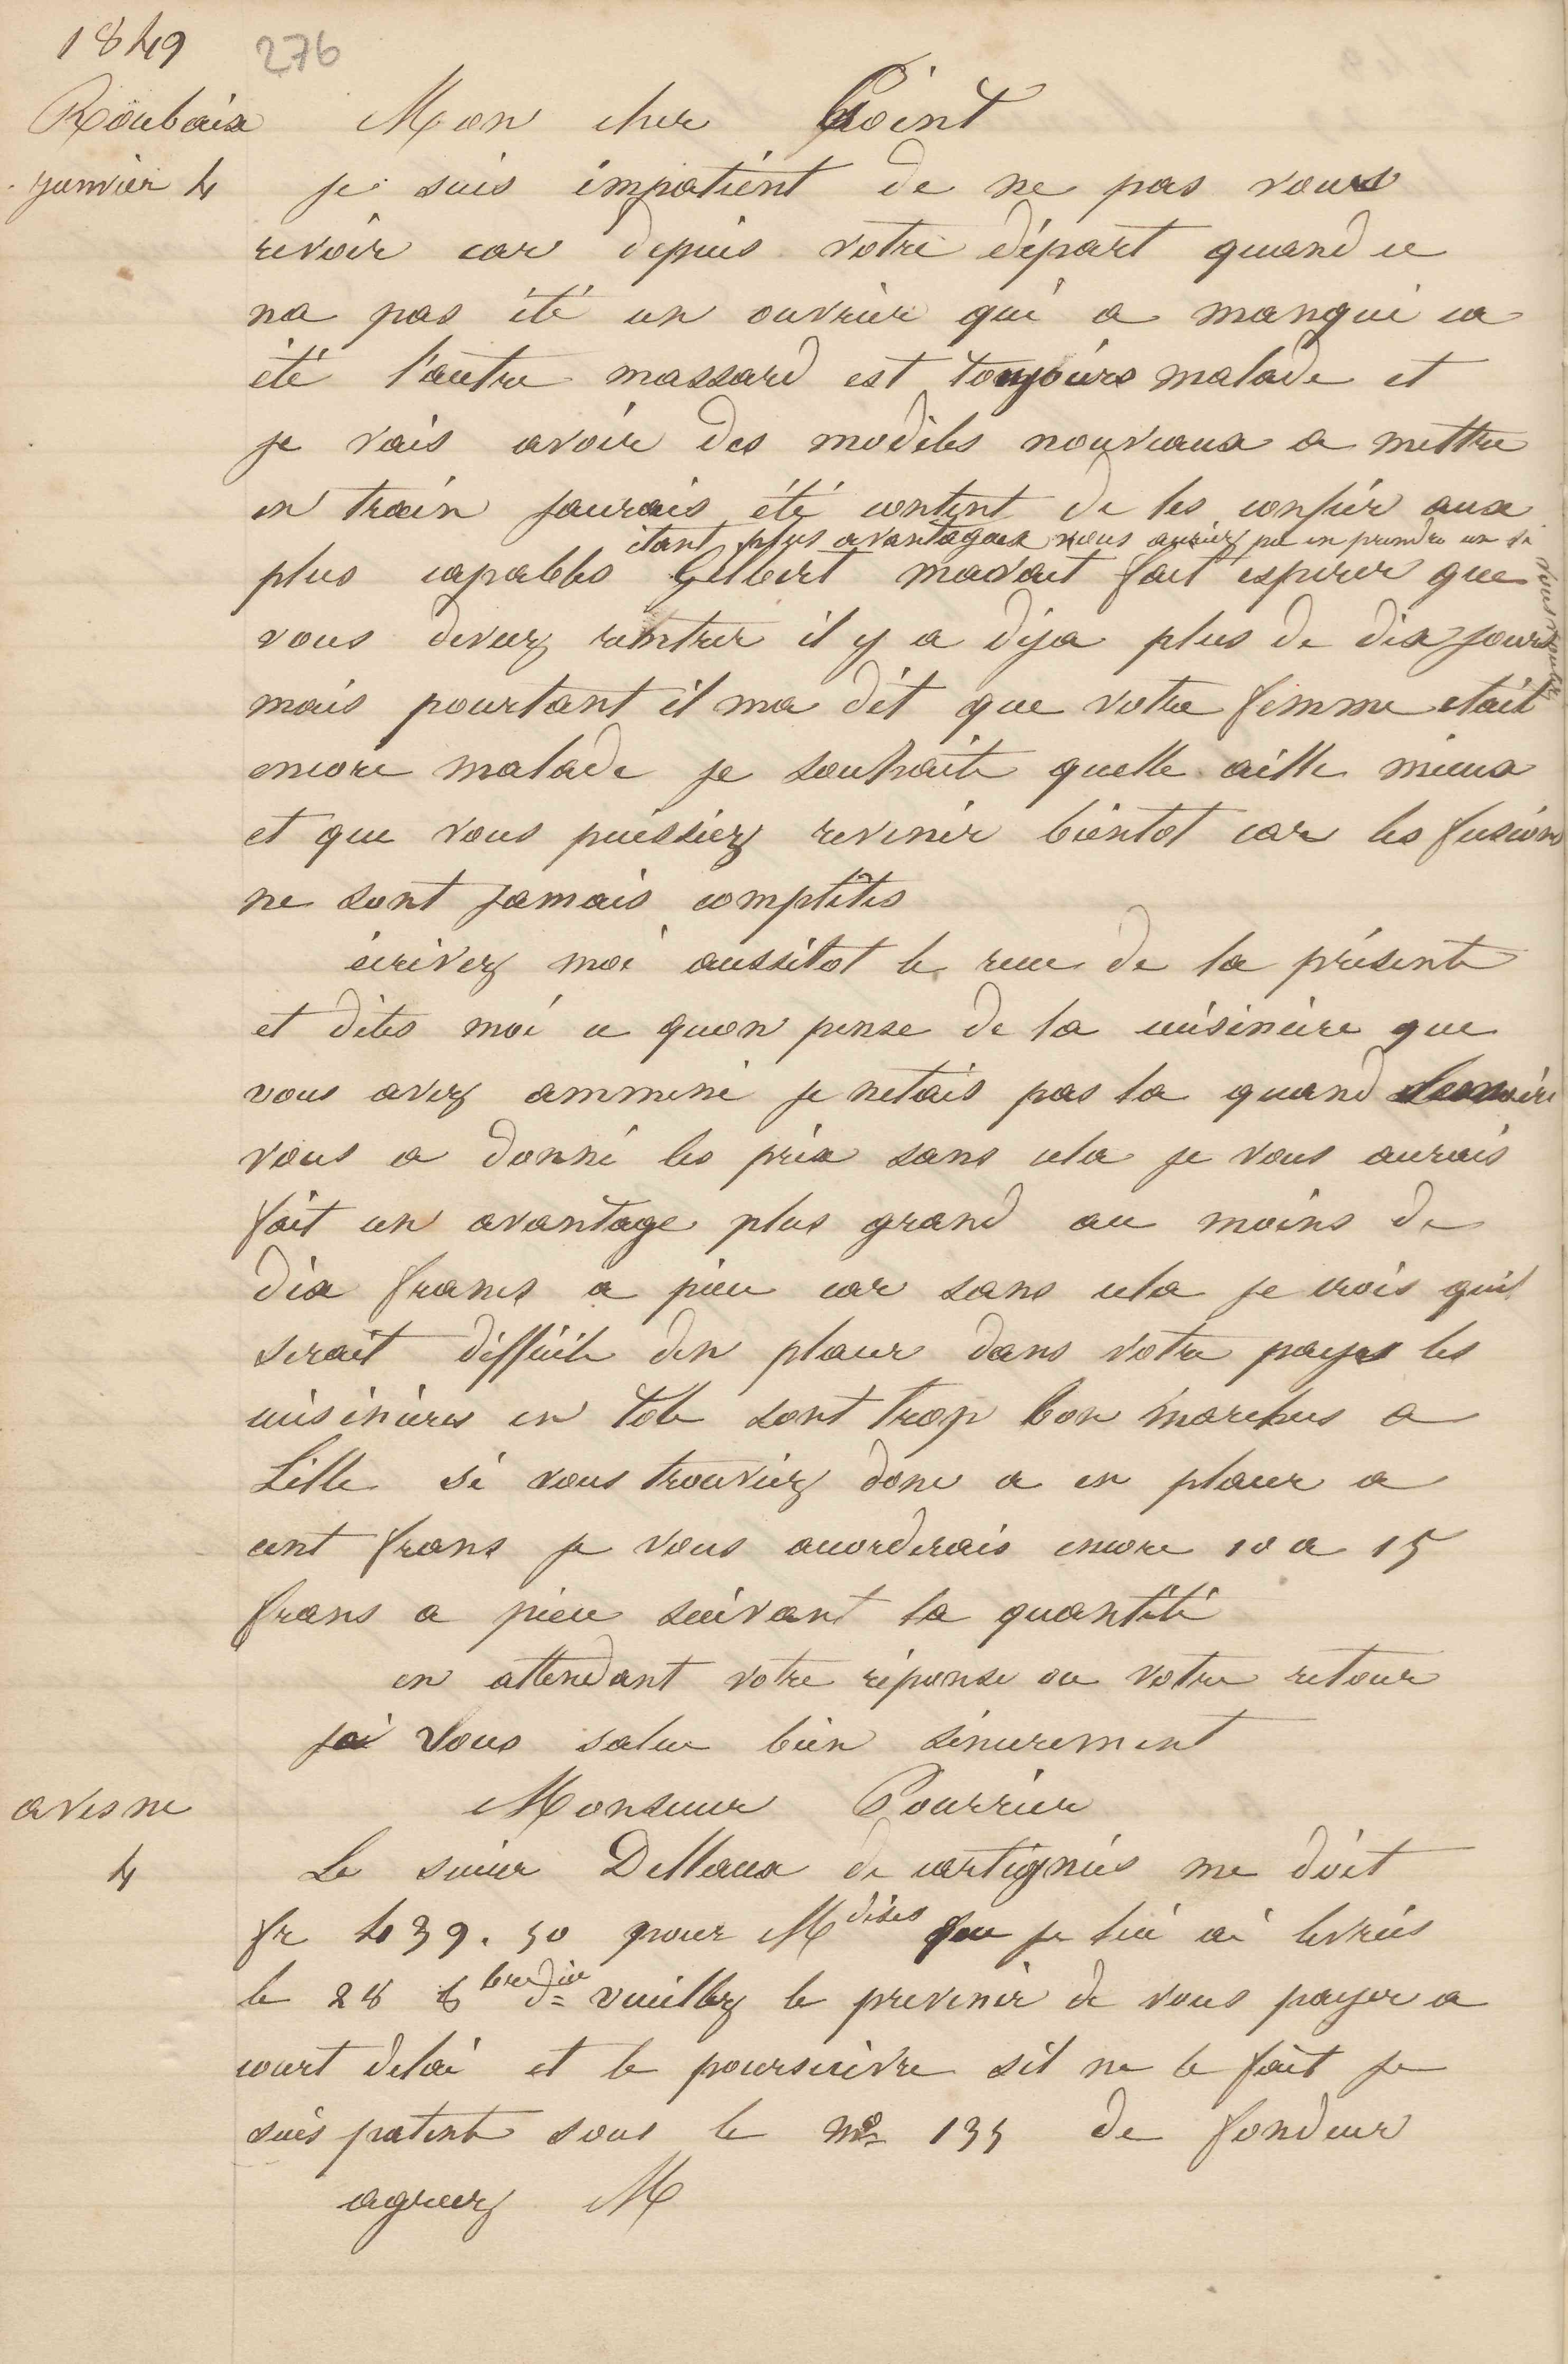 1849
276
Roubaix
Mon cher Point
janvier 4
je suis impatient de ne pas vous
revoir car depuis votre départ quand ce
na pas été un ouvrier qui a manqué ca
été l'autre massard est toujours malade et
je vais avoir des modèles nouveaux a mettre
en train jaurais été content de les confier aux
étant plus avantageux vous auriez pu en prendre un si
plus capables Gelbert mavait fait espérer que
vous deviez rentrer il y a déja plus de dix jours
mais pourtant il ma dit que votre femme etait
encore malade je souhaite quelle aille mieux
et que vous puissiez revenir bientot car les fusions
ne sont jamais complètes
écrivez moi aussitot le recu de la présente
et dites moi ce quon pense de la cuisinière que
vous avez ammené je netais pas la quand
vous a donné les prix sans cela je vous aurais
fait un avantage plus grand au moins de
dix francs a pièce car sans cela je crois quil
serait difficile den placer dans votre payes les
cuisinières en tole sont trop bon marchés a
Lille si vous trouviez donc a en placer a
cent frans je vous accorderais encore 10 a 15
frans a pièce suivant la quantité
en attendant votre réponse ou votre retour
jai vous salue bien sincerement
avesne
Monsieur Pourrier
4
Le sieur Dellaux de cartigniés me doit
fr 439.50 pour Mdises que je lui ai livrées
le 28 bre der veuillez le prevenir de vous payer a
court delai et le poursuivre sil ne le fait je
suis patenté sous le no 135 de fondeur
agreez M